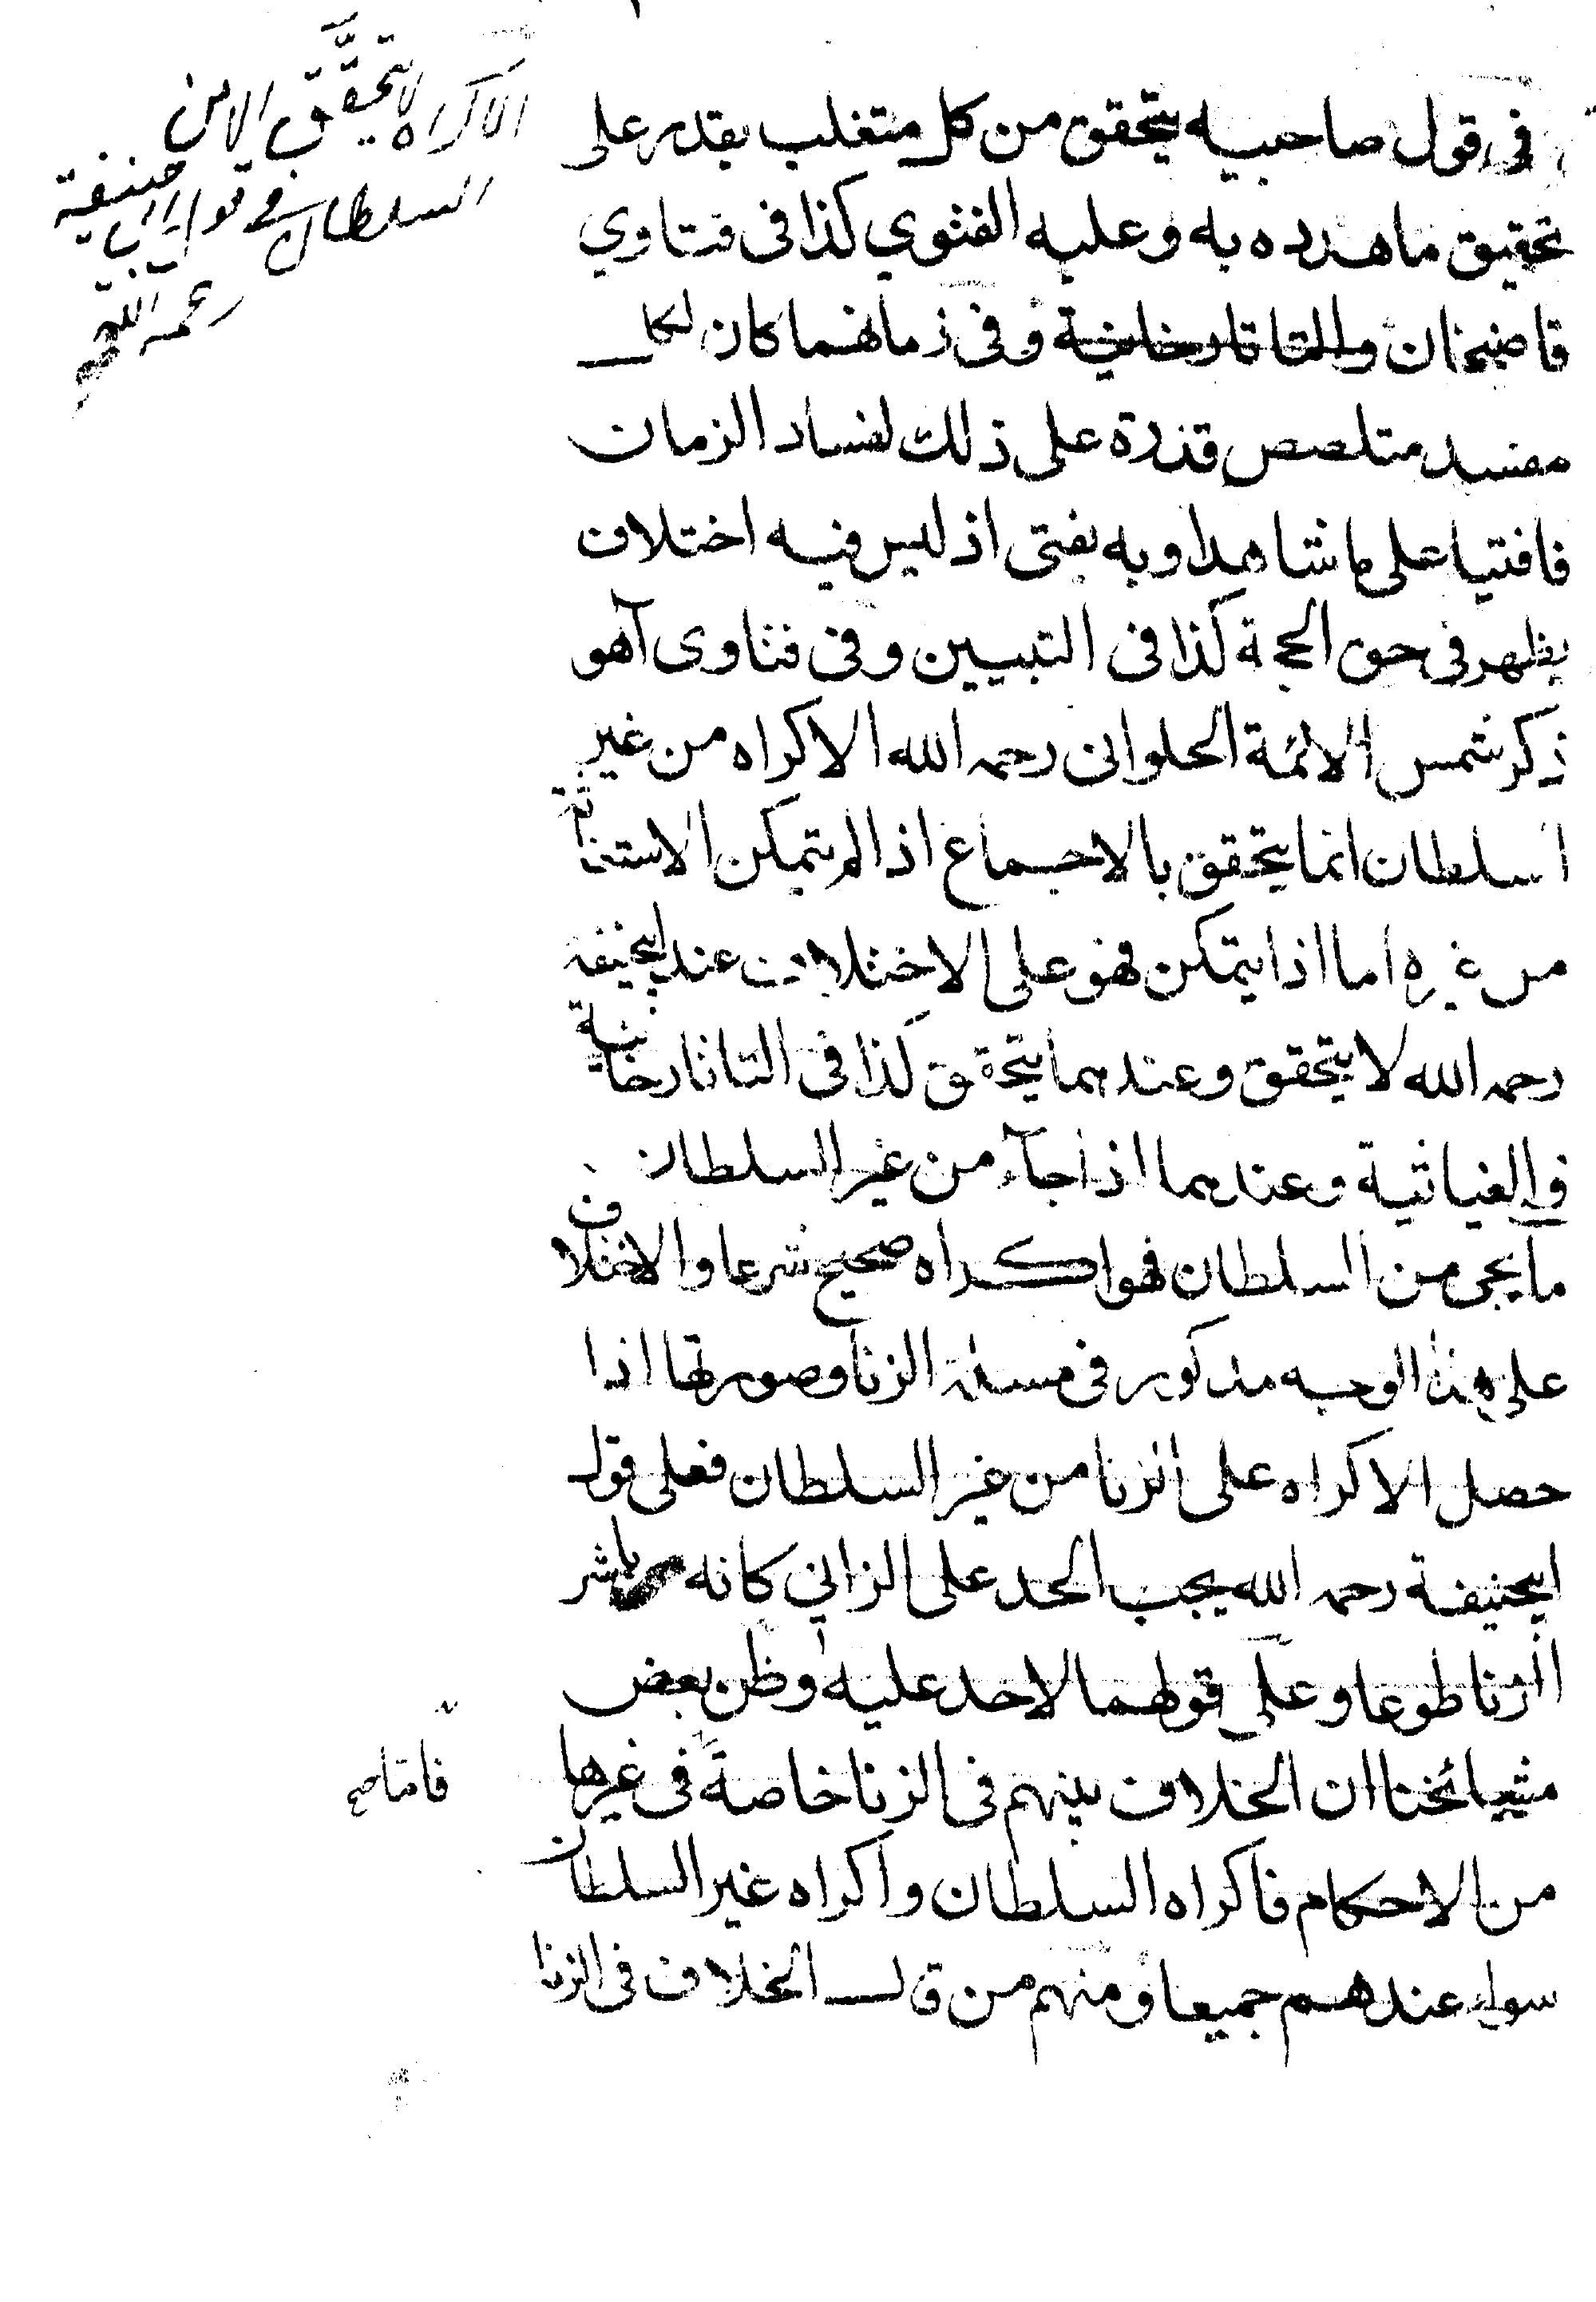 في قول صاحبيه يتحقق من كل متغلب يقدر على
تحقيق ما هدده به وعليه الفتوي كذا في فتاوي
قاضيخان والتاتارخانية وفي زمانهما كان لكل
مفسد متلصص قدرة على ذلك لفساد الزمان
فافتيا على ما شاهدا وبه يفتى اذ ليس فيه اختلاف
يظهر في حق الحجة كذا في التبيين وفي فتاوى آهو
ذكر شمس الائمة الحلواني رحمه الله الاكراه من غير
السلطان انما يتحقق بالاجماع اذا لم يتمكن الاستغاثة
من غيره اما اذا يتمكن فهو على الاختلاف عند ابيحنيفة
رحمه الله لا يتحقق وعندهما يتحقق كذا في التاتارخانية
في الغياثية وعندهما اذا جآء من غير السلطان
ما يجي من السلطان فهو اكراه صحيح شرعا والاختلاف
على هذا الوجه مذكور في مسئلة الزنا وصورتها اذا
حصل الاكراه على الزنا من غير السلطان فعلى قول
ابيحنيفة رحمه الله يجب الحد على الزاني كانه باشر
الزنا طوعا وعلى قولهما لا حد عليه وظن بعض
مشائخنا ان الخلاف بينهم في الزنا خاصة في غيرها
من الاحكام فاكراه السلطان واكراه غير السلطان
سواء عندهم جميعا ومنهم من قال الخلاف في الزنا
الاكراه لا يتحقق الا من
السلطان في قول ابي حنيفة
رحمه الله
فاما صح